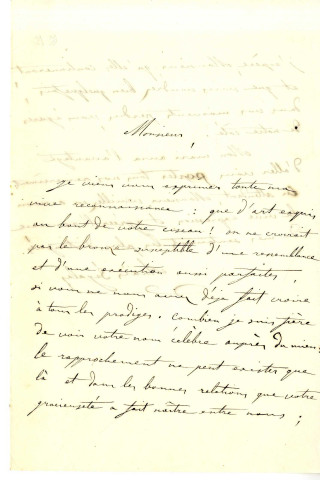 Monsieur,
je viens vous exprimer toute ma
vive reconnaissance : que d'art exquis
au bout de votre ciseau ! on ne croirait
pas le bronze susceptible d'une ressemblance
et d'une exécution aussi parfaites,
si vous ne nous aviez déjà fait croire
à tous les prodiges. combien je suis fière
de voir votre nom célèbre auprès du mien :
le rapprochement ne peut exister que
là et dans les bonnes relations que votre
gracieuseté a fait naître entre nous ;